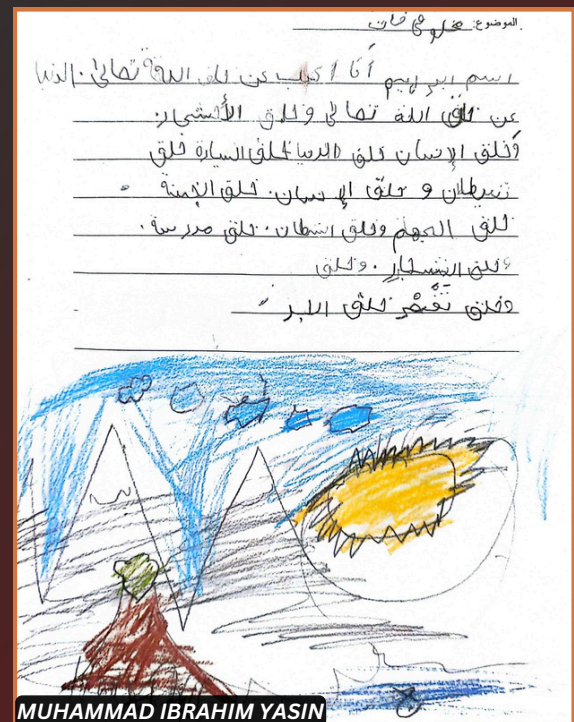 الموضوع:
اسم ابراهيم أنا أكتب عن خلق اللة تعالى. الدنيا
عن خلق اللة تعالى وخلق الأشجار.
وخلق الإنسان خلق الدنيا خلق السيارة خلق
و خلق الإنسان. خلق الجنة
خلق الجهنم وخلق الشطان. خلق مدرسة.
وخلق. وخلق
وخلق خلق
MUHAMMAD IBRAHIM YASIN